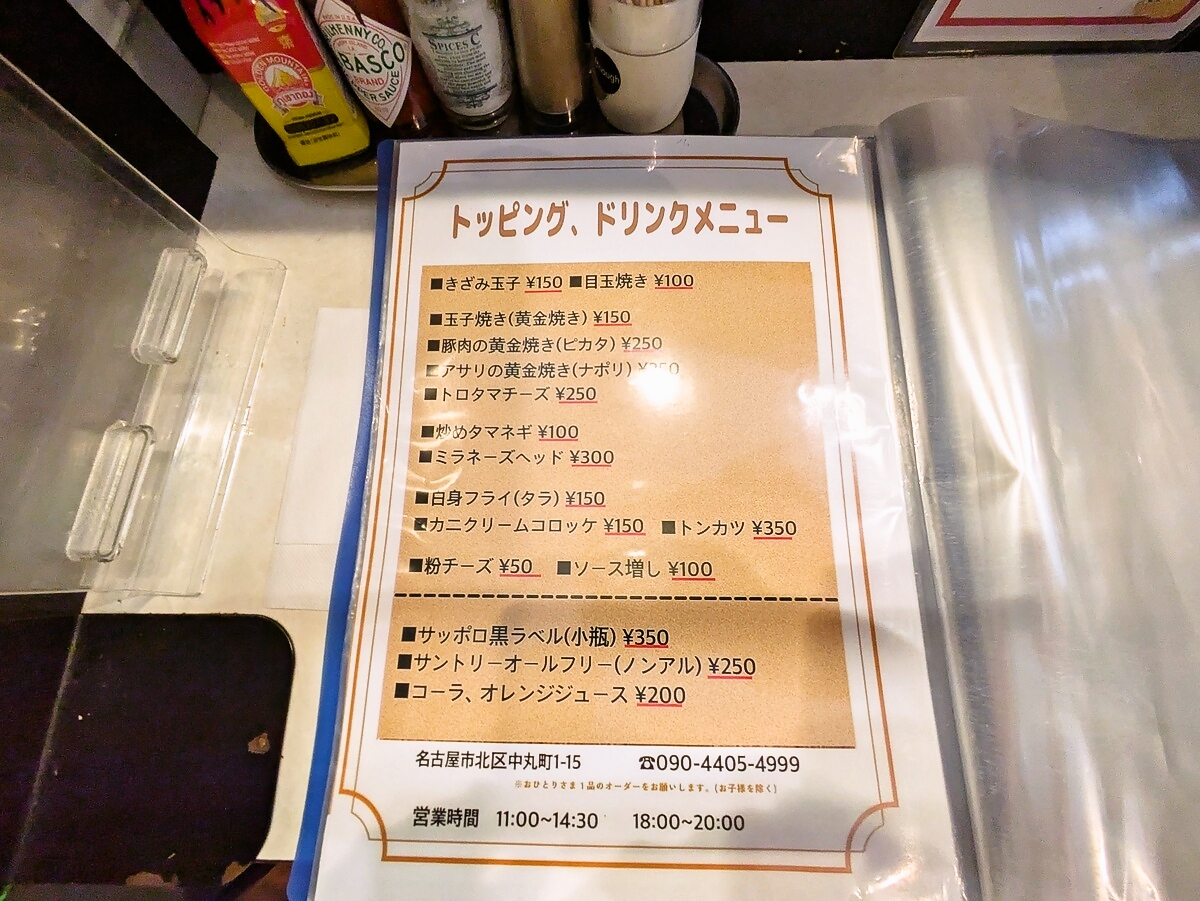 GOLDEN MOUNTAIN
MADE IN U.S.A.
McILHENNY CO.
TABASCO
BRAND
PEPPER SAUCE
SPICES
トッピング、ドリンクメニュー
■きざみ玉子 ¥150 ■目玉焼き ¥100
■玉子焼き(黄金焼き) ¥150
■豚肉の黄金焼き(ピカタ) ¥250
■アサリの黄金焼き(ナポリ)
■トロタマチーズ ¥250
■炒めタマネギ ¥100
■ミラネーズヘッド ¥300
■白身フライ(タラ) ¥150
■カニクリームコロッケ ¥150 ■トンカツ ¥350
■粉チーズ ¥50 ■ソース増し ¥100
■サッポロ黒ラベル(小瓶) ¥350
■サントリーオールフリー(ノンアル) ¥250
■コーラ、オレンジジュース ¥200
名古屋市北区中丸町1-15 ☎090-4405-4999
※おひとりさま1品のオーダーをお願いします。(お子様を除く)
営業時間 11:00~14:30 18:00~20:00